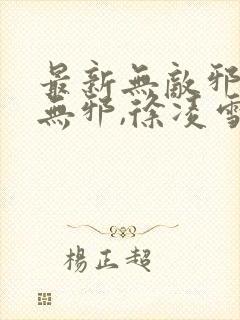 最新無敵邪
無邪,徐凌雪
楊正超